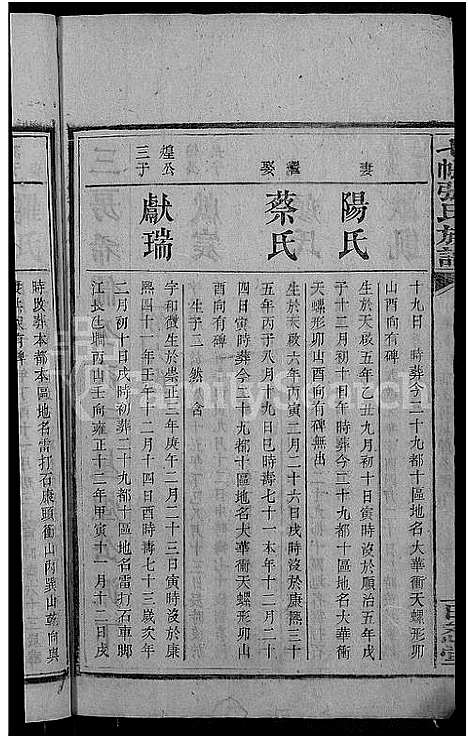 張氏族譜
十九日 時葬今二十九都十區地名大華衝天螺形卯
山酉向有碑
妻 陽氏
生於天啟五年乙丑九月初十日寅時沒於順治五年戊
子十二月初十日午時葬今二十九都十區地名大華衝
天螺形卯山酉向有碑無出
繼娶 蔡氏
生於天啟六年丙寅二月二十六日戌時沒於康熙三十
五年丙子八月十九日巳時壽七十一本年十二月二十
四日寅時葬今二十九都十區地名大華衝天螺形卯山
酉向有碑
生子二 然 含
煌公三子 獻瑞
字和徵生於崇正三年庚午二月二十三日寅時沒於康
熙四十一年壬午十二月十四日酉時壽七十三歲次年
二月初十日戌時初葬二十九都十區地名雷打石車腳
江長生壙丙山壬向雍正十二年甲寅十一月十二日戌
時改葬本都本區地名雷打石康頭衝山內巽山乾向與